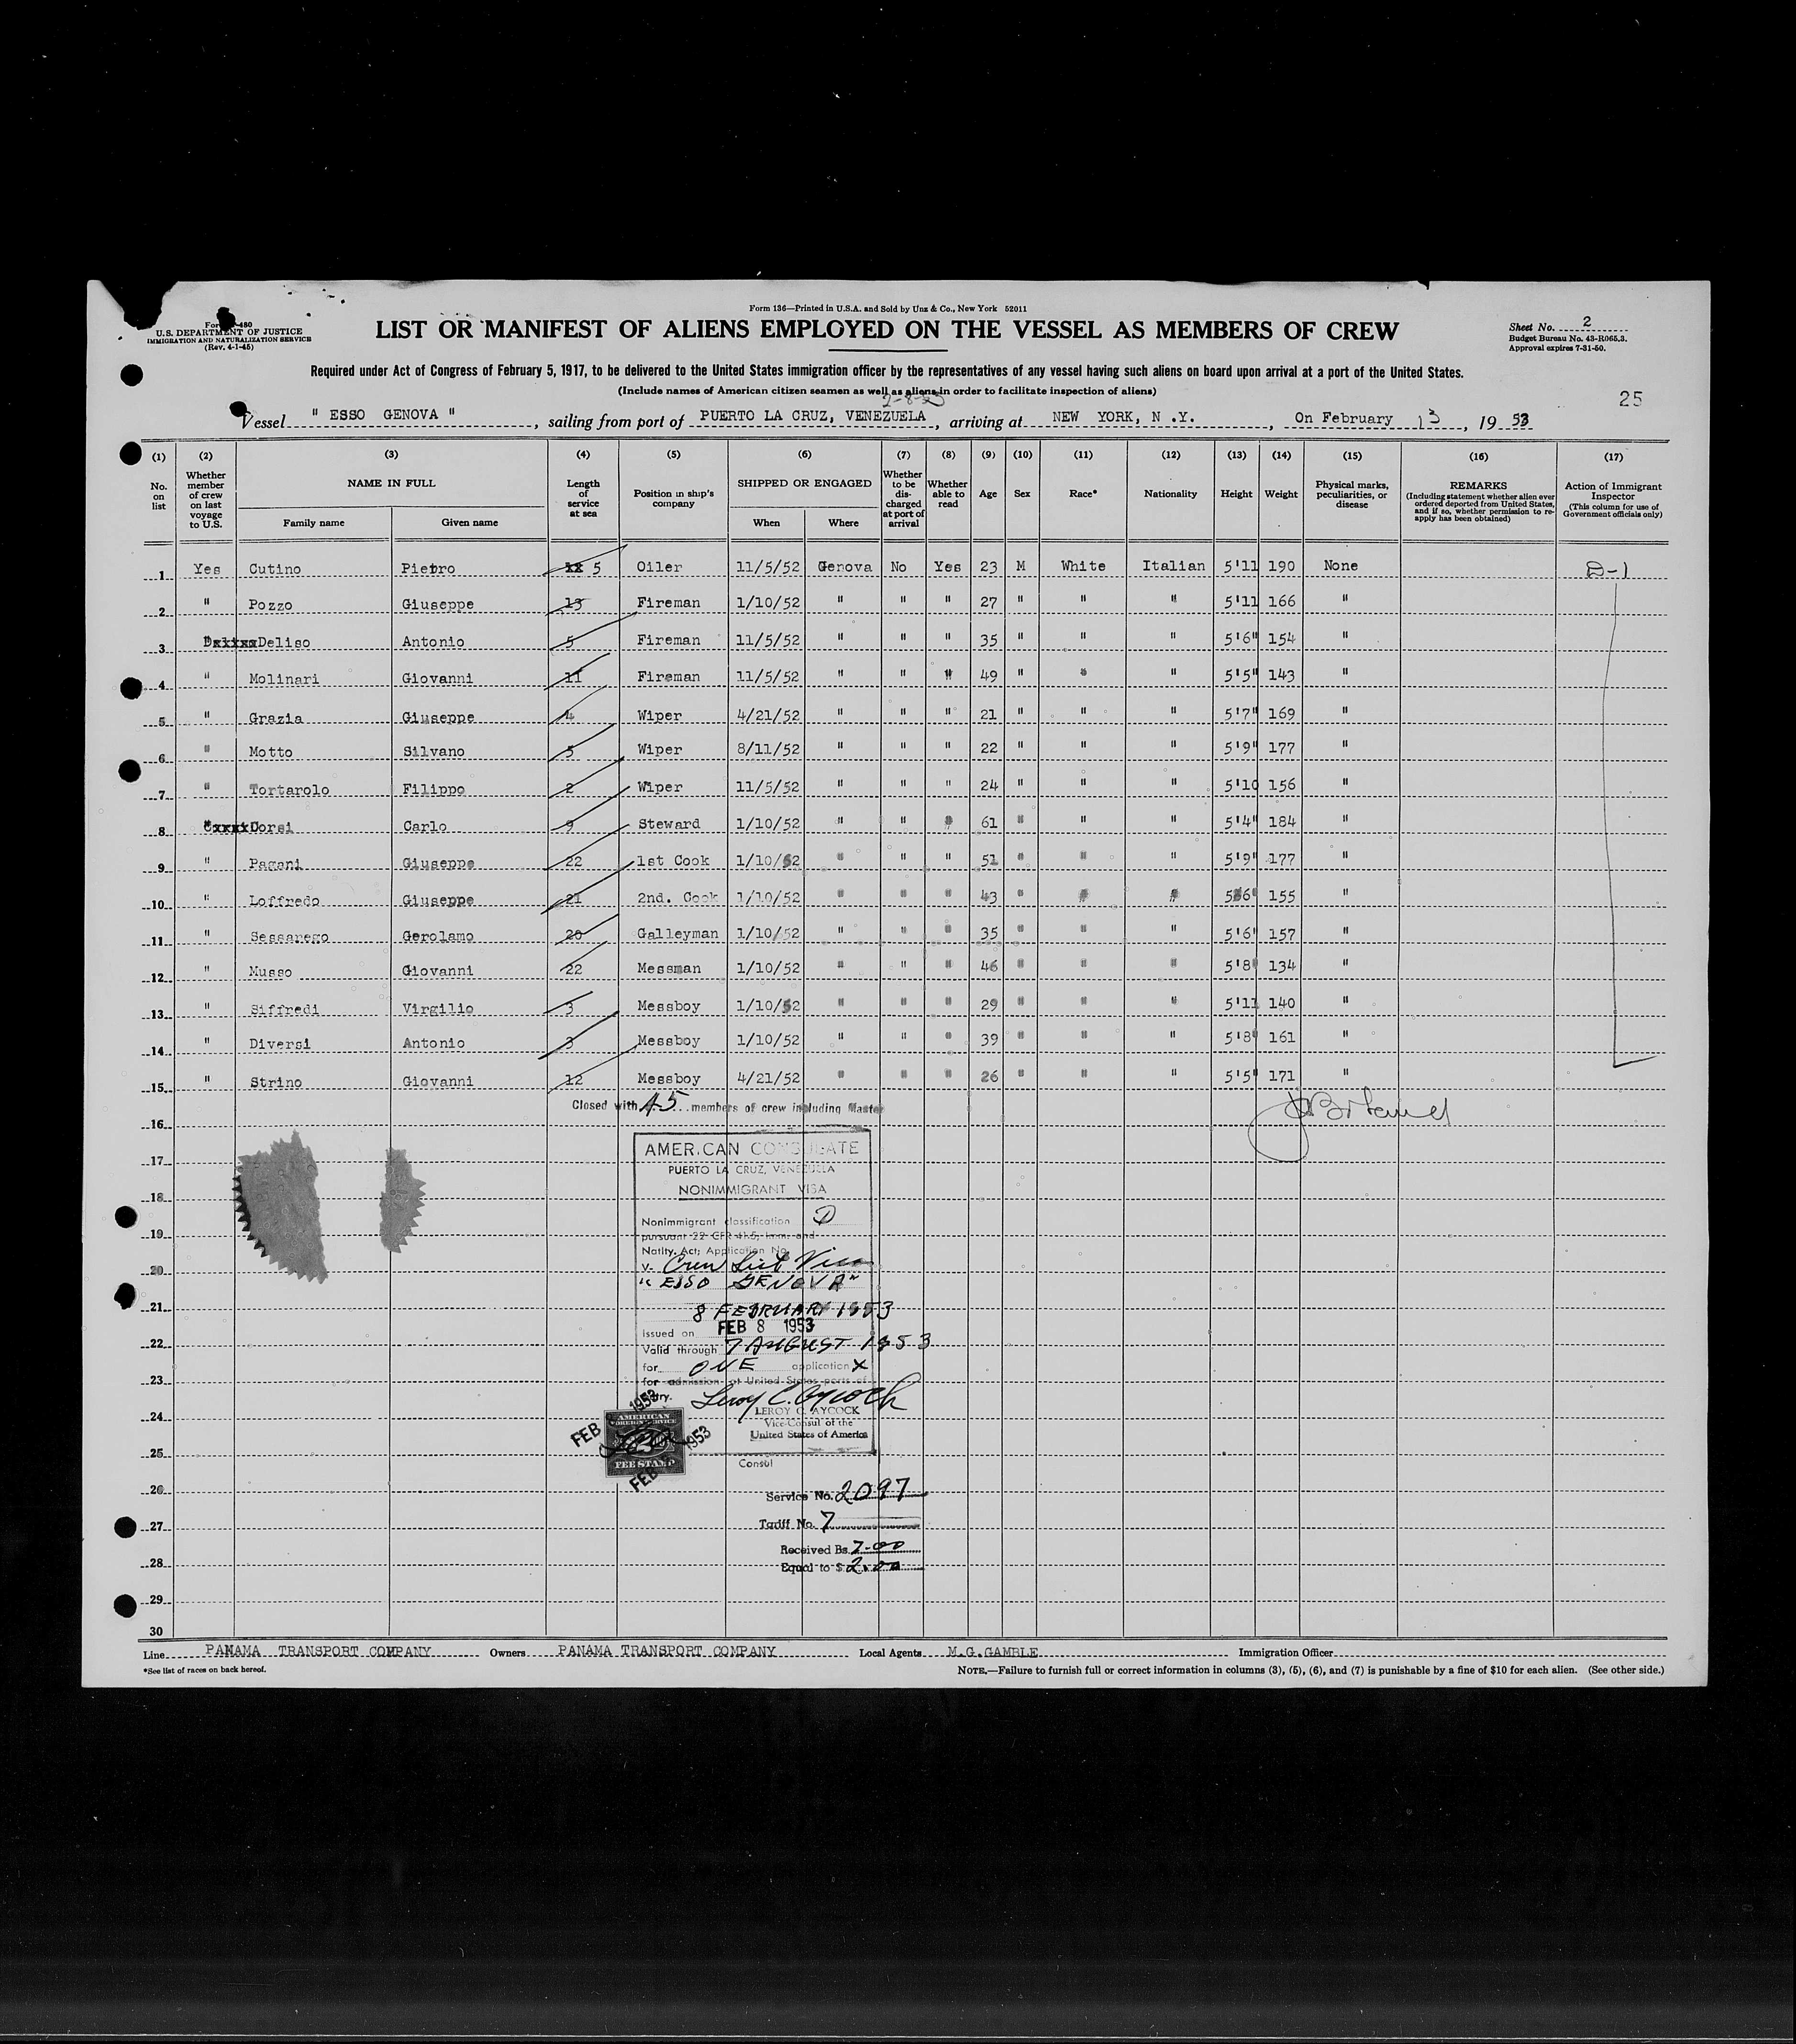 Form 136—Printed in U.S.A. and Sold by Unz & Co., New York 52011
U.S. DEPARTMENT OF JUSTICE
IMMIGRATION AND NATURALIZATION SERVICE
(Rev. 4-1-45)
LIST OR MANIFEST OF ALIENS EMPLOYED ON THE VESSEL AS MEMBERS OF CREW
Sheet No. 2
Budget Bureau No. 43-R065.3.
Approval expires 7-31-50.
Required under Act of Congress of February 5, 1917, to be delivered to the United States immigration officer by the representatives of any vessel having such aliens on board upon arrival at a port of the United States.
(Include names of American citizen seamen as well as aliens in order to facilitate inspection of aliens)
2-8-53
25
Vessel " ESSO GENOVA ", sailing from port of PUERTO LA CRUZ, VENEZUELA, arriving at NEW YORK, N .Y., On February 13, 19 53
(1) (2) (3) (4) (5) (6) (7) (8) (9) (10) (11) (12) (13) (14) (15) (16) (17)
No. on list
Whether member of crew on last voyage to U.S.
NAME IN FULL
Family name Given name
Length of service at sea
Position in ship's company
SHIPPED OR ENGAGED
When Where
Whether to be discharged at port of arrival
Whether able to read
Age
Sex
Race*
Nationality
Height
Weight
Physical marks, peculiarities, or disease
REMARKS
(Including statement whether alien ever ordered deported from United States, and if so, whether permission to re-apply has been obtained)
Action of Immigrant Inspector
(This column for use of Government officials only)
1 Yes Cutino Pietro 5 Oiler 11/5/52 Genova No Yes 23 M White Italian 5'11 190 None D-1
2 " Pozzo Giuseppe 13 Fireman 1/10/52 " " " 27 " " " 5'11 166 "
3 " Deliso Antonio 5 Fireman 11/5/52 " " " 35 " " " 5'6" 154 "
4 " Molinari Giovanni 11 Fireman 11/5/52 " " " 49 " " " 5'5" 143 "
5 " Grazia Giuseppe 4 Wiper 4/21/52 " " " 21 " " " 5'7" 169 "
6 " Motto Silvano 5 Wiper 8/11/52 " " " 22 " " " 5'9" 177 "
7 " Tortarolo Filippo 2 Wiper 11/5/52 " " " 24 " " " 5'10 156 "
8 " Dorsi Carlo 9 Steward 1/10/52 " " " 61 " " " 5'4" 184 "
9 " Pagani Giuseppe 22 1st Cook 1/10/52 " " " 51 " " " 5'9" 177 "
10 " Loffredo Giuseppe 21 2nd. Cook 1/10/52 " " " 43 " " " 5'6" 155 "
11 " Sessarego Gerolamo 20 Galleyman 1/10/52 " " " 35 " " " 5'6" 157 "
12 " Musso Giovanni 22 Messman 1/10/52 " " " 46 " " " 5'8" 134 "
13 " Siffredi Virgilio 3 Messboy 1/10/52 " " " 29 " " " 5'11 140 "
14 " Diversi Antonio 3 Messboy 1/10/52 " " " 39 " " " 5'8" 161 "
15 " Strino Giovanni 12 Messboy 4/21/52 " " " 26 " " " 5'5" 171 "
Closed with 45 members of crew including Master
16
17
18
19
20
21
22
23
24
25
26
27
28
29
30
AMERICAN CONSULATE
PUERTO LA CRUZ, VENEZUELA
NONIMMIGRANT VISA
Nonimmigrant classification D
pursuant 22 CFR 41.5, Imm. and
Natlty. Act; Application No.
V. Crew List Visa
"ESSO GENOVA"
8 FEBRUARY 1953
Issued on FEB 8 1953
Valid through 7 AUGUST 1953
for ONE application X
for admission at United States ports of
entry.
Leroy C. Aycock
LEROY C. AYCOCK
Vice-Consul of the
United States of America
Consul
AMERICAN
FOREIGN SERVICE
FEE STAMP
FEB 1953
FEB 1953
Service No. 2097
Tariff No. 7
Received Bs. 7.00
Equal to $ 2.00
Line PANAMA TRANSPORT COMPANY Owners PANAMA TRANSPORT COMPANY Local Agents M.G.GAMBLE Immigration Officer
*See list of races on back hereof.
NOTE.—Failure to furnish full or correct information in columns (3), (5), (6), and (7) is punishable by a fine of $10 for each alien. (See other side.)